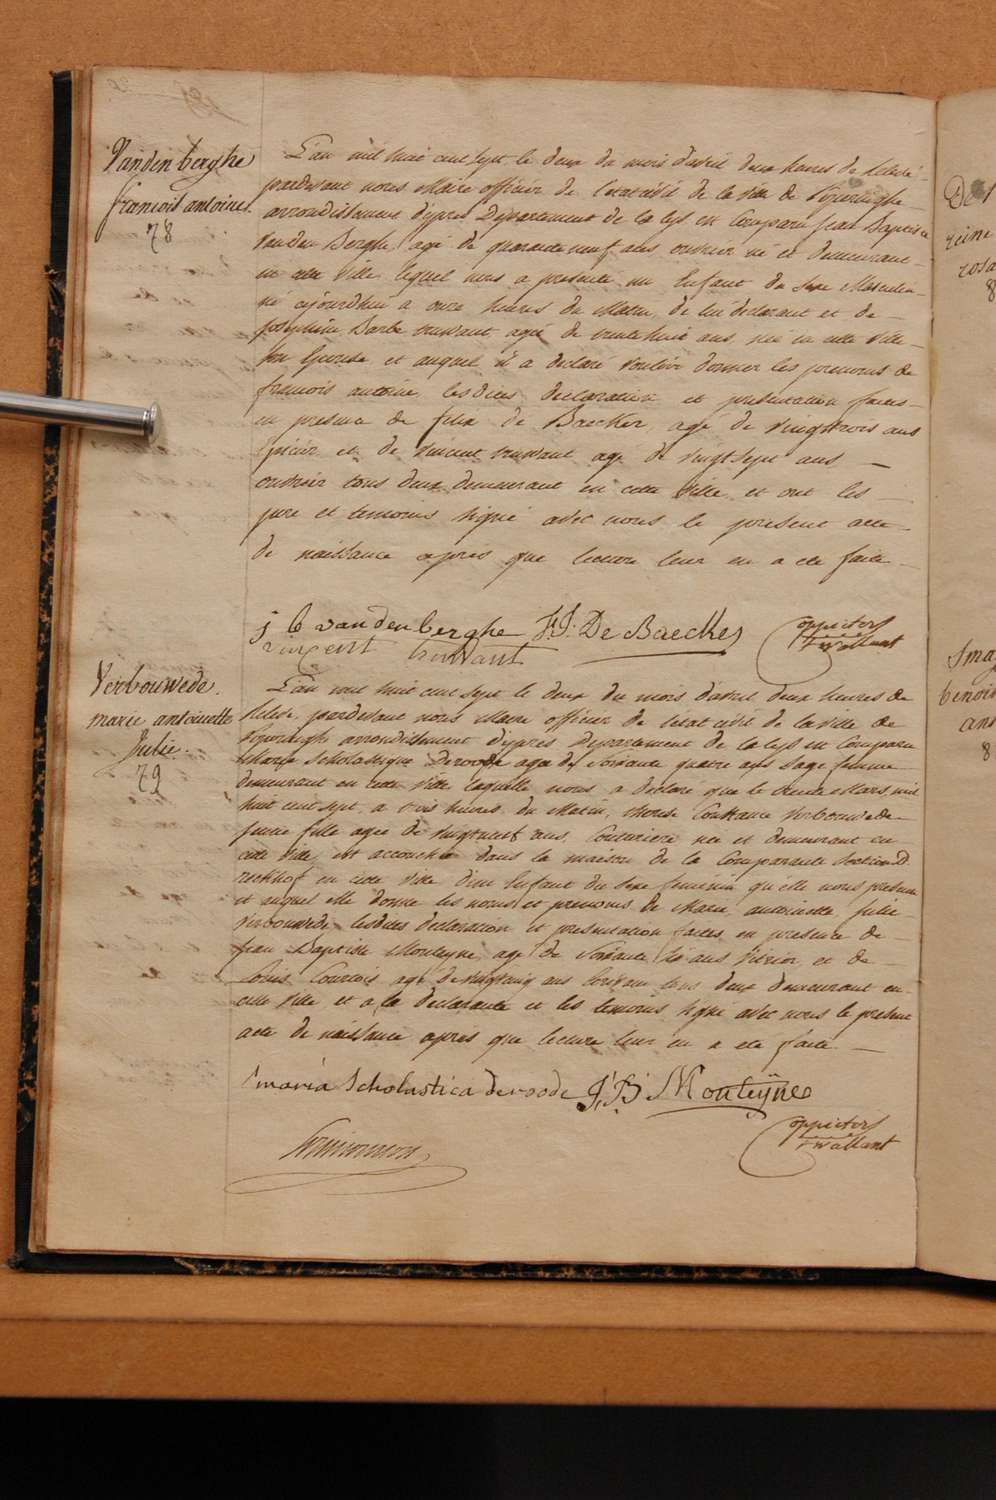 Vanden berghe
francois antoine.
78
L'an mil huit cent sept le deux du mois d'avril deux heures de relevée
pardevant nous Maire officier de l'etat civil de la ville de Poperinghe
arrondissement d'ypres Departement de la lys est Comparu Jean Baptiste
Vanden Berghe, agé de quarante neuf ans ouvrier né et demeurant
en cette Ville, lequel nous a presenté un Enfant du sexe Masculin
né cejourdhui a onze heures du Matin, de lui declarant et de
Josephine Barbe truwant, agée de trente huit ans, née en cette Ville
son Epouse et auquel il a declaré vouloir donner les prenoms de
francois antoine, lesdites declaration et presentation faites
en presence de felix de Baecker, agé de vingt trois ans
Epicier et de vincent truwant agé de vingt sept ans
ouvrier tous deux demeurant en cette Ville, et ont les
pere et temoins signé avec nous le present acte
de naissance apres que lecture leur en a eté faite
j b vanden berghe F.J. De Baecker
vincent truwant
Verbouwede.
marie antoinette
Julie.
79
L'an mil huit cent sept le deux du mois d'avril deux heures de
relevée, pardevant nous Maire officier de l'etat civil de la ville de
Poperinghe arrondissement d'ypres Departement de la lys est Comparu
Marie Scholastique Deroode agée de soixante quatre ans Sage femme
demeurant en cette Ville, laquelle nous a declaré que le deux Mars, mil
huit cent sept, a trois heures du Matin, therese Constance Verbouwede
jeune fille agée de vingt neuf ans, Couturiere née et demeurant en
cette Ville, est accouchée dans la maison de la Comparante Section D
en cette Ville d'un Enfant du Sexe feminin qu'elle nous presente
et auquel elle donne les noms et prenoms de Marie, antoinette, julie
Verbouwede, lesdites declaration et presentation faites en presence de
Jean Baptiste Monteyne, agé de Soixante six ans Vitrier, et de
Louis Courtois agé de vingt cinq ans Ecrivain tous deux demeurant en
cette Ville, et a la declarante et les temoins signé avec nous le present
acte de naissance apres que lecture leur en a eté faite
maria Scholastica deroode J: B: Monteÿne